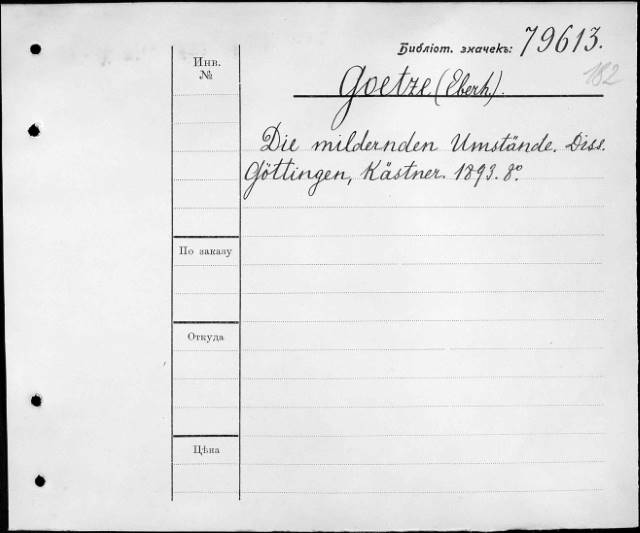 Библіот. значекъ: 79613.
182
Инв.
№
Goetze (Eberh.).
Die mildernden Umstände. Diss.
Göttingen, Kästner. 1893. 8º.
По заказу
Откуда
Цѣна